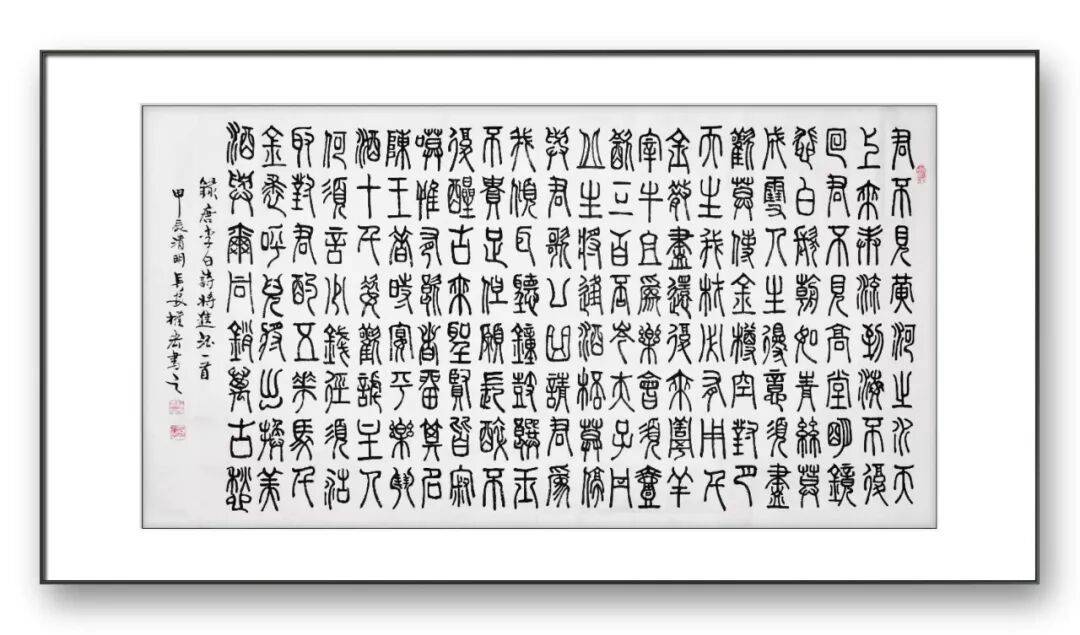 君不見黃河之水天
上來奔流到海不復
回君不見高堂明鏡
悲白髮朝如青絲莫
成雪人生得意須盡
歡莫使金樽空對月
天生我材必有用千
金散盡還復來烹羊
宰牛且為樂會須壹
飲三百杯岑夫子丹
丘生將進酒杯莫停
與君歌一曲請君為
我傾耳聽鐘鼓饌玉
不貴足但願長醉不
復醒古來聖賢皆寂
寞惟有飲者留其名
陳王昔時宴平樂斗
酒十千恣歡謔主人
何須言少錢徑須沽
取對君酌五花馬千
金裘呼兒將出換美
酒與爾同銷萬古愁
錄唐李白詩將進酒一首
甲辰清明長安權宏書之